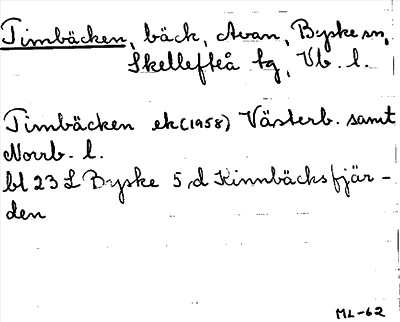 Timbäcken, bäck, Avan, Byske sn,
Skellefteå tg, Vb. l.
Timbäcken ek (1958) Västerb. samt
Norrb. l.
bl 23 L Byske 5, d Kinnbäcksfjär-
den
ML-62